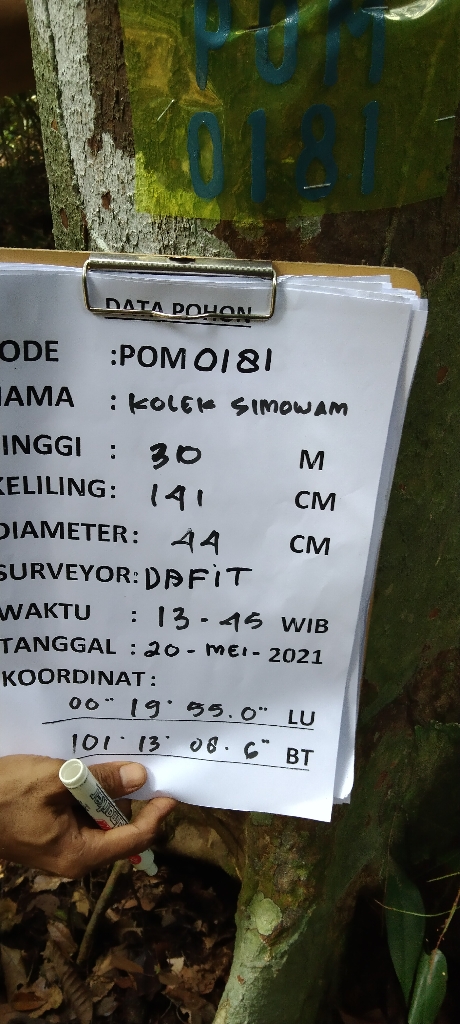 POM
0181
DATA POHON
ODE :POM 0181
AMA : KOLEK SIMOWAM
INGGI : 30 M
KELILING: 141 CM
DIAMETER: 44 CM
SURVEYOR: DAFIT
WAKTU : 13-45 WIB
TANGGAL : 20-MEI-2021
KOORDINAT:
00° 19' 55.0" LU
101° 13' 08.6" BT